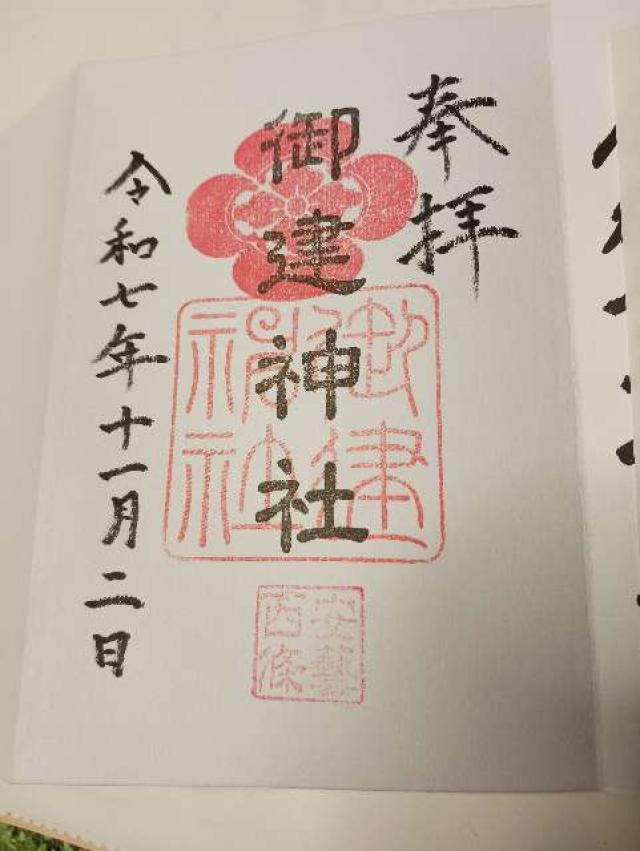 奉拝
御建神社
御建神社
安藝西條
令和七年十一月二日